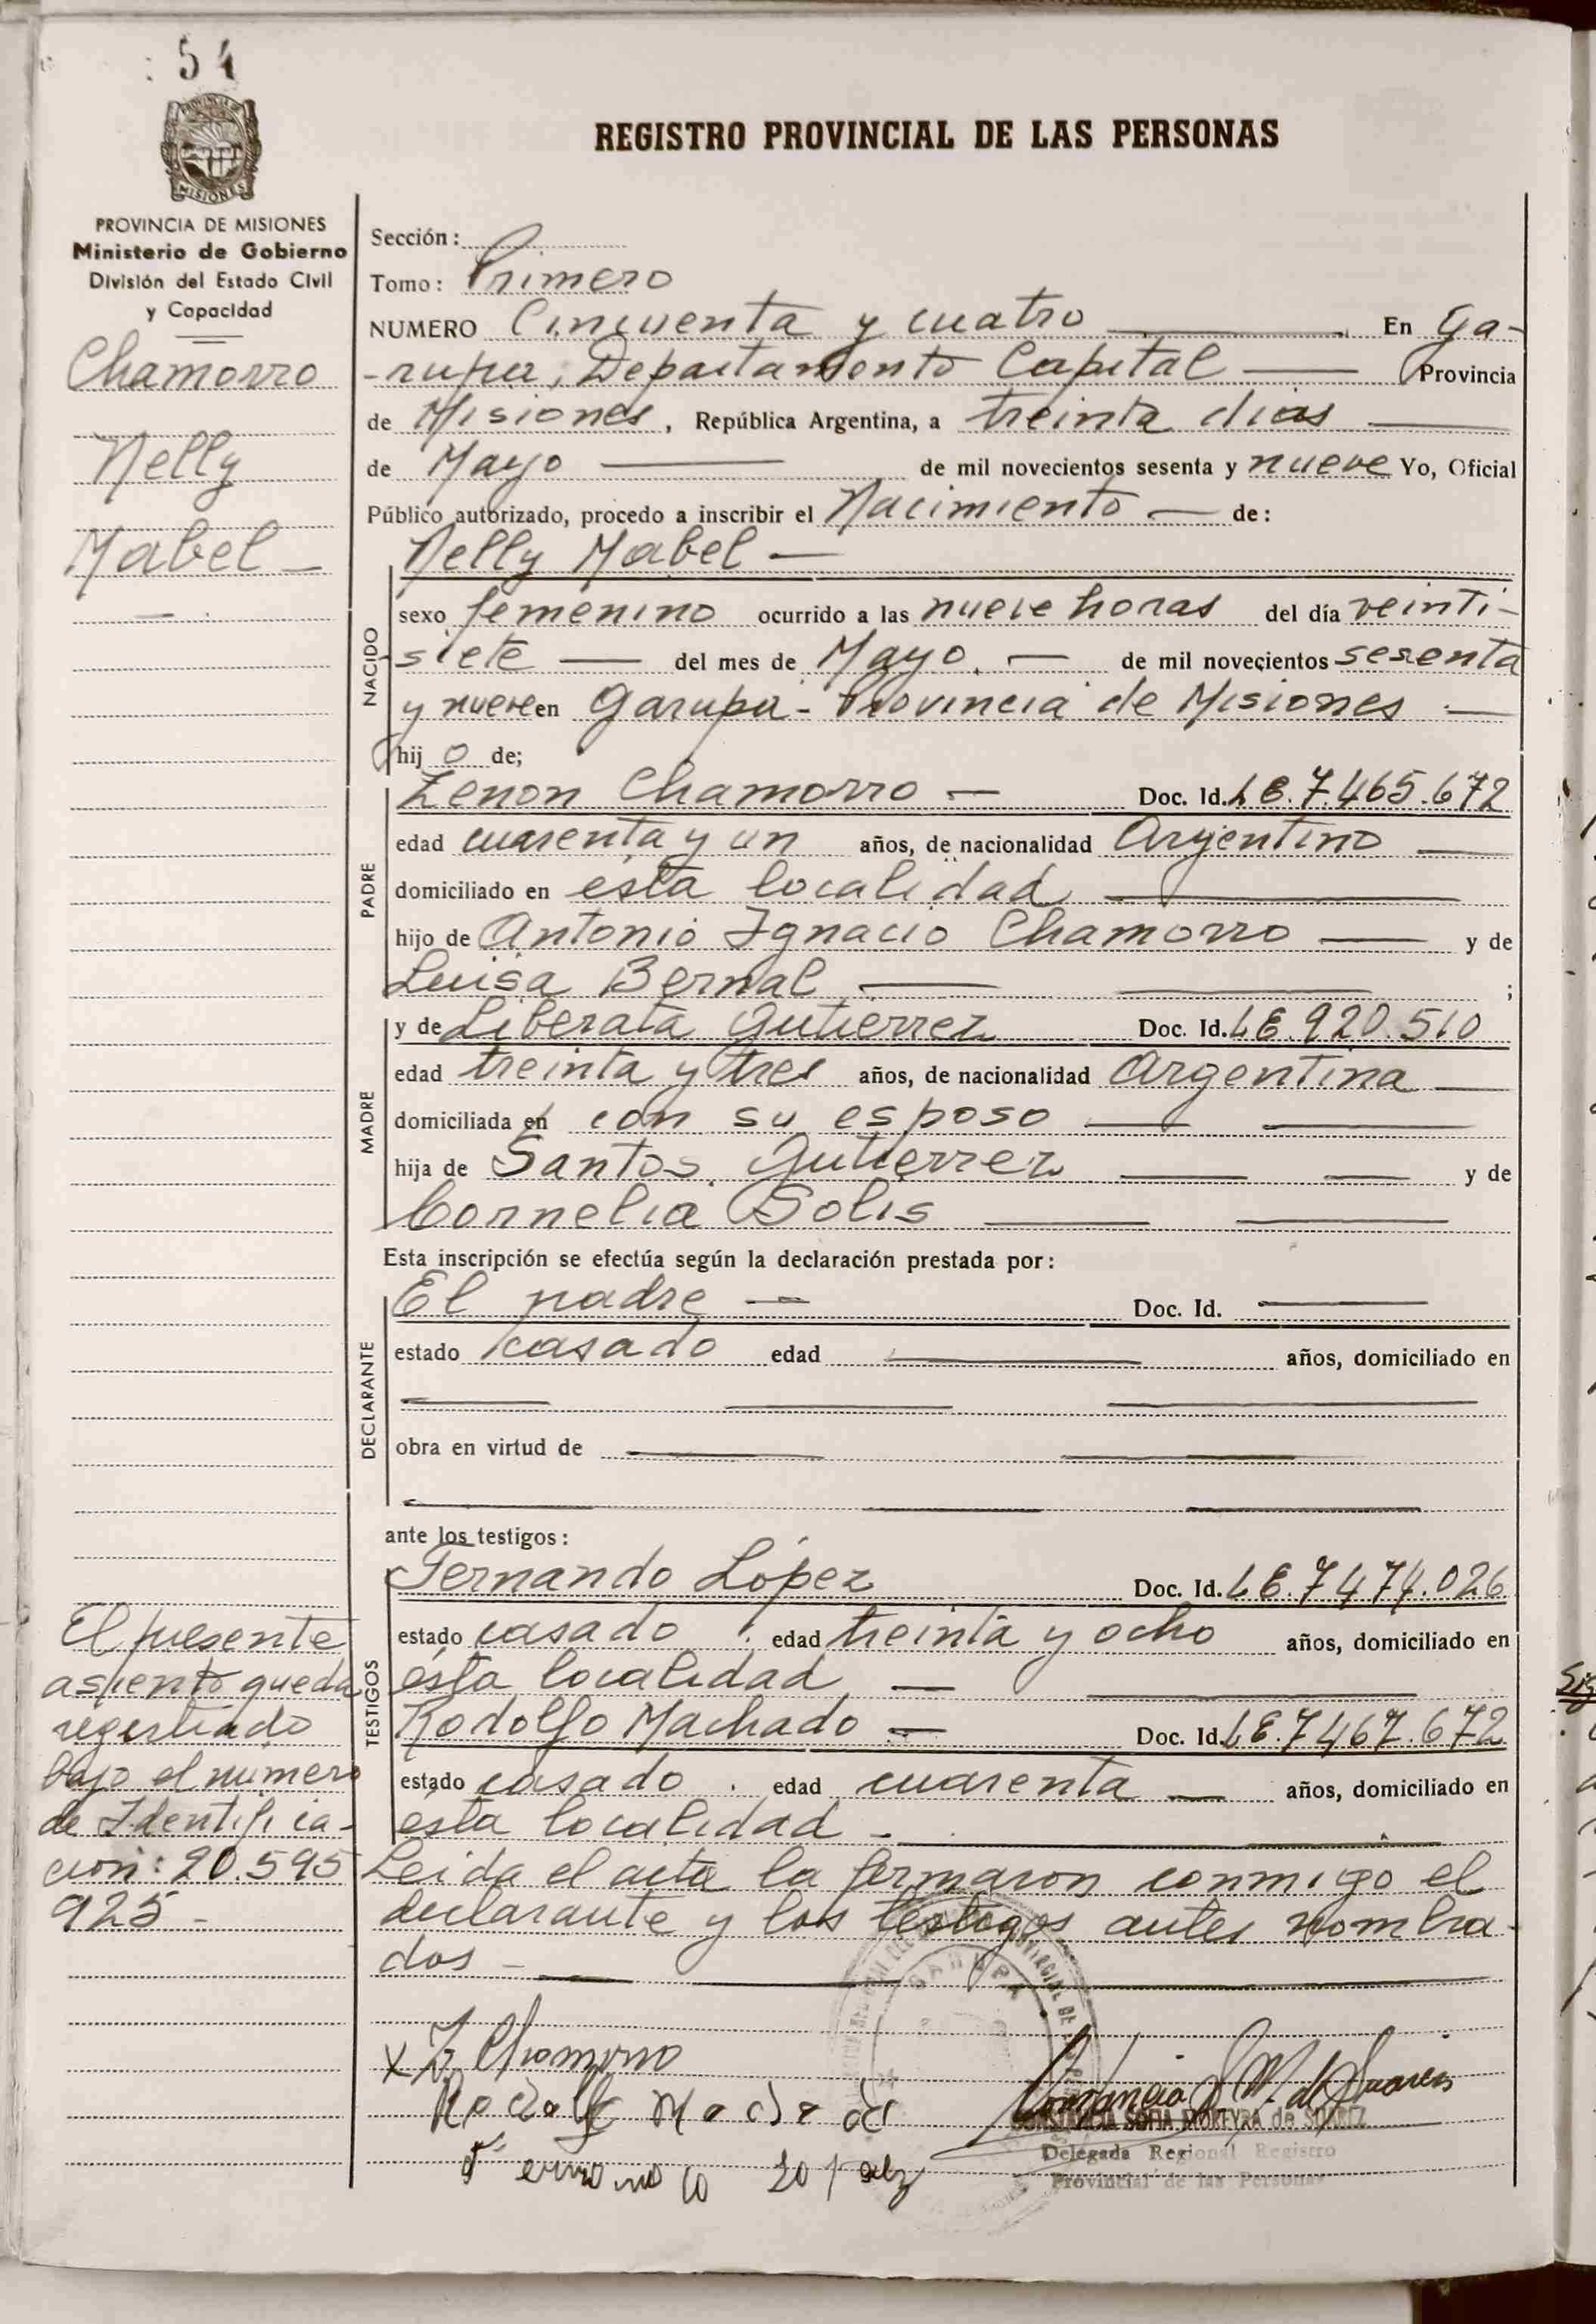 54
PROVINCIA DE MISIONES
Ministerio de Gobierno
División del Estado Civil
y Capacidad
Chamorro
Nelly
Mabel —
REGISTRO PROVINCIAL DE LAS PERSONAS
Sección:
Tomo: Primero
NUMERO Cincuenta y cuatro En Ga-
-rupa, Departamento Capital Provincia
de Misiones, República Argentina, a treinta dias
de Mayo de mil novecientos sesenta y nueve Yo, Oficial
Público autorizado, procedo a inscribir el Nacimiento — de:
Nelly Mabel —
NACIDO
sexo femenino ocurrido a las nueve horas del día veinti-
siete — del mes de Mayo. — de mil novecientos sesenta
y nueve en Garupa - Provincia de Misiones —
hij o de;
PADRE
Zenon Chamorro — Doc. Id. LE.7.465.672
edad cuarenta y un años, de nacionalidad Argentino
domiciliado en esta localidad
hijo de Antonio Ignacio Chamorro — y de
Luisa Bernal ;
MADRE
y de Liberata Gutierrez Doc. Id. LE.920.510
edad treinta y tres años, de nacionalidad Argentina
domiciliada en con su esposo
hija de Santos Gutierrez y de
Cornelia Solis
Esta inscripción se efectúa según la declaración prestada por:
DECLARANTE
El padre — Doc. Id.
estado casado edad años, domiciliado en
obra en virtud de
ante los testigos:
TESTIGOS
Fernando López Doc. Id. LE.7474.026
estado casado. edad treinta y ocho años, domiciliado en
ésta localidad —
Rodolfo Machado — Doc. Id. LE.7467.672
estado casado. edad cuarenta — años, domiciliado en
ésta localidad -
Leida el acta la firmaron conmigo el
declarante y los testigos antes nombra-
dos -
El presente
asiento queda
registrado
bajo el número
de Identifica-
cion: 20.595
925 -
GARUPA
x Z Chamorro
CONSTANCIA SOFIA MOREYRA de SUAREZ
Delegada Regional Registro
Provincial de las Personas